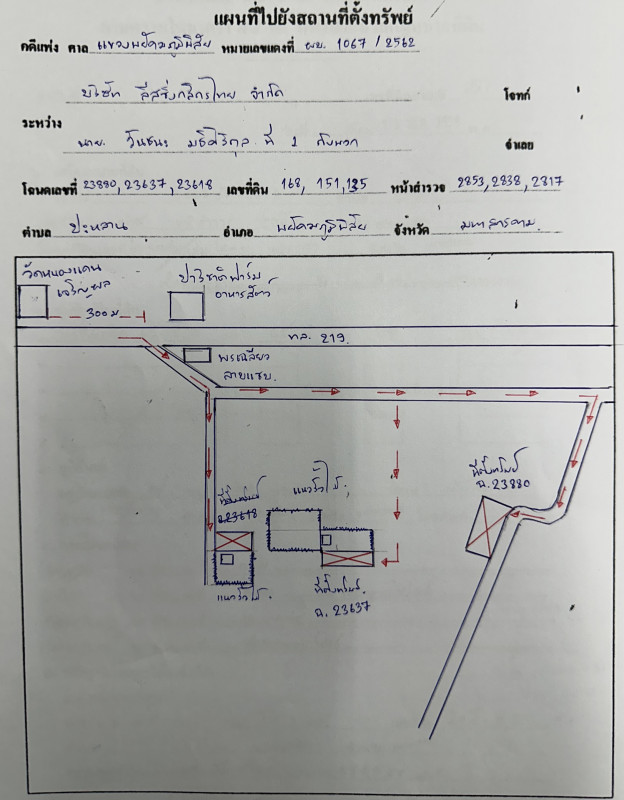 แผนที่ไปยังสถานที่ตั้งทรัพย์
คดีแพ่ง ศาล แขวงพยัคฆภูมิพิสัย หมายเลขแดงที่ ผบ. 1067 / 2562
บริษัท ลีสซิ่งกสิกรไทย จำกัด โจทก์
ระหว่าง
นาย วันชนะ ที่ 1 กับพวก จำเลย
โฉนดเลขที่ 23880, 23637, 23618 เลขที่ดิน 168, 151, 135 หน้าสำรวจ 2853, 2838, 2817
ตำบล ปะหลาน อำเภอ พยัคฆภูมิพิสัย จังหวัด มหาสารคาม
วัดหนองแคน
เจริญผล
300 ม
ปาริชาติฟาร์ม
อาหารสัตว์
ทล. 219
พรเฉลียว
ลาบแซบ
ที่ตั้งทรัพย์
ฉ. 23880
แนวรั้วไม้
ที่ตั้งทรัพย์
ฉ. 23618
แนวรั้วไม้
ที่ตั้งทรัพย์
ฉ. 23637